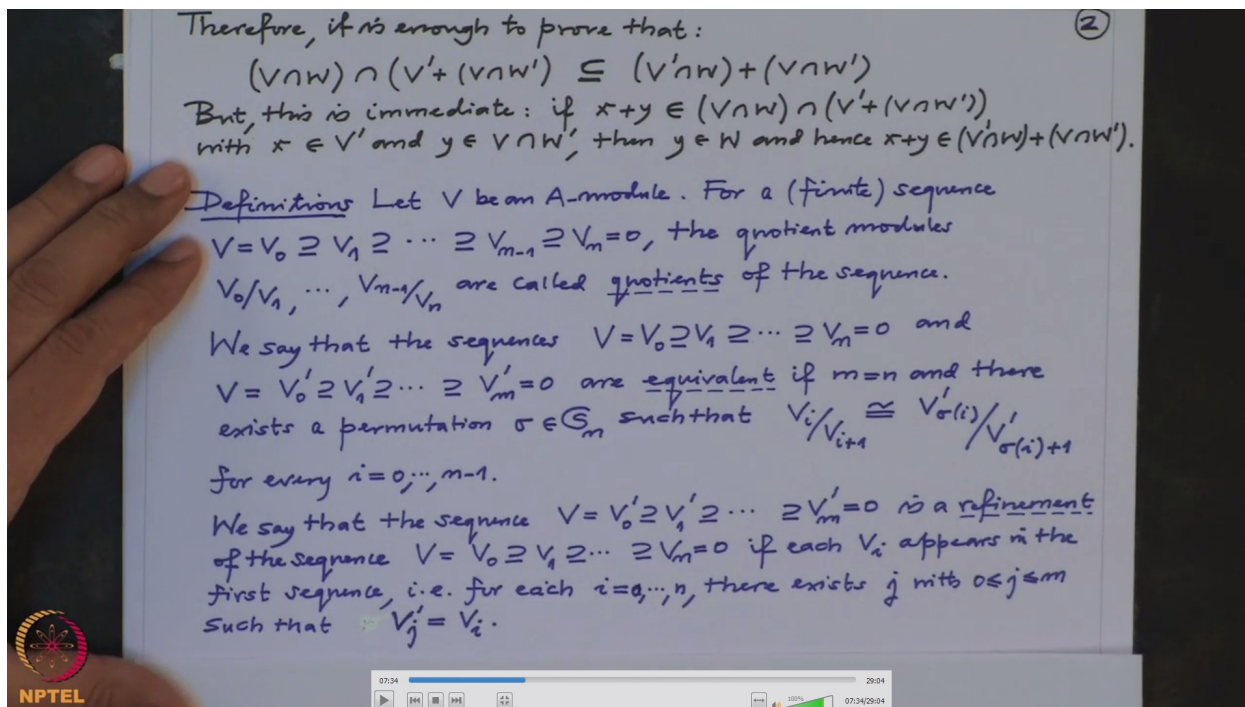 Therefore, it is enough to prove that: ②
(V∩W) ∩ (V'+(V∩W') ⊆ (V'∩W)+(V∩W')
But, this is immediate: if x+y ∈ (V∩W) ∩ (V'+(V∩W'))
with x ∈ V' and y ∈ V∩W', then y ∈ W and hence x+y ∈ (V'∩W)+(V∩W').
Definitions Let V be an A-module. For a (finite) sequence
V = V₀ ⊇ V₁ ⊇ ··· ⊇ Vₘ₋₁ ⊇ Vₘ = 0, the quotient modules
V₀/V₁, ···, Vₘ₋₁/Vₙ are called quotients of the sequence.
We say that the sequences V = V₀ ⊇ V₁ ⊇ ··· ⊇ Vₘ = 0 and
V = V₀' ⊇ V₁' ⊇ ··· ⊇ Vₘ' = 0 are equivalent if m=n and there
exists a permutation σ ∈ 𝔖ₘ such that Vᵢ/Vᵢ₊₁ ≅ V'σ(i)/V'σ(i)+1
for every i=0,··,n-1.
We say that the sequence V = V₀' ⊇ V₁' ⊇ ··· ⊇ Vₘ' = 0 is a refinement
of the sequence V = V₀ ⊇ V₁ ⊇ ··· ⊇ Vₙ = 0 if each Vᵢ appears in the
first sequence, i.e. for each i=0,··,n, there exists j with 0≤j≤m
such that Vⱼ' = Vᵢ.
NPTEL
07:34 29:04
100% 07:34/29:04